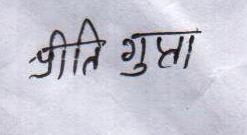 प्रीति गुप्ता